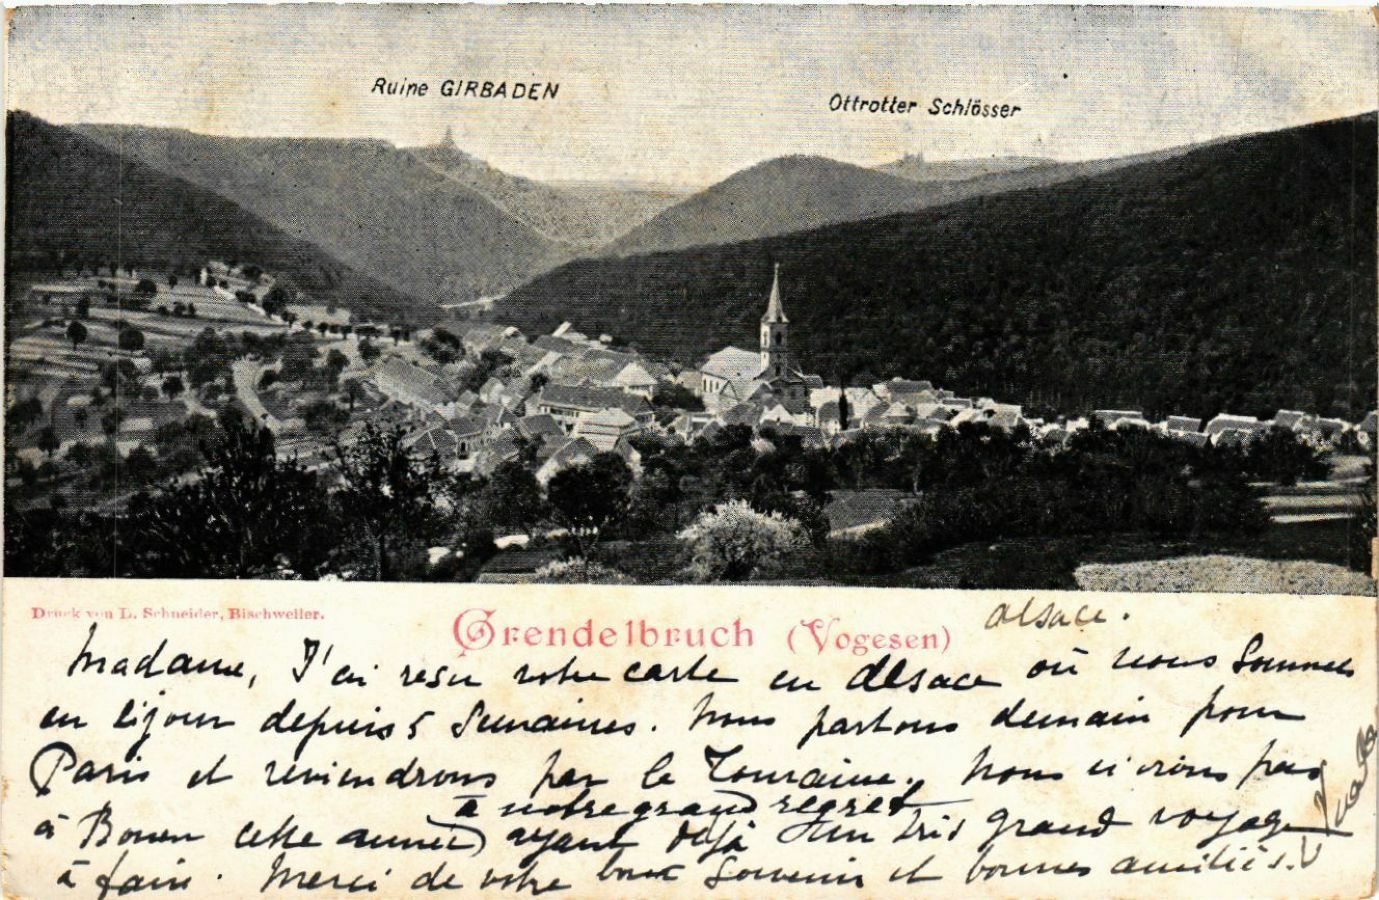 Ruine GIRBADEN
Ottrotter Schlösser
Druck von L. Schneider, Bischweiler.
Grendelbruch (Vogesen)
Alsace.
Madame, J'ai resu votre carte en Alsace où nous sommes
en séjour depuis 5 semaines. Nous partons demain pour
Paris et reviendrons par la Touraine. Nous n'irons pas
à notre grand regret
à Rouen cette année ayant déjà un très grand voyage
à faire. Merci de votre bon souvenir et bonnes amitiés.